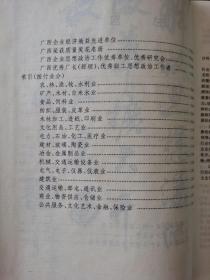 广西企业经济效益先进单位
广西荣获质量奖花名册
广西企业思想政治工作优秀单位、优秀研究会
广西优秀厂长(经理)、优秀职工思想政治工作者
索引(按行业分)
农、林、渔、牧、水利业
矿产、木材、自来水业
食品、饲料业
纺织、服装、皮革业
木材加工、造纸、印刷业
文化用品、工艺业
电力、石油、化工、医疗业
建材、玻璃、陶瓷业
冶金、金属制品业
机械、交通运输设备业
电气、电子、仪器、仪表业
建筑业
交通运输、邮电、通讯业
商业、物资供应、仓储业
公共服务、文化艺术、金融、保险业